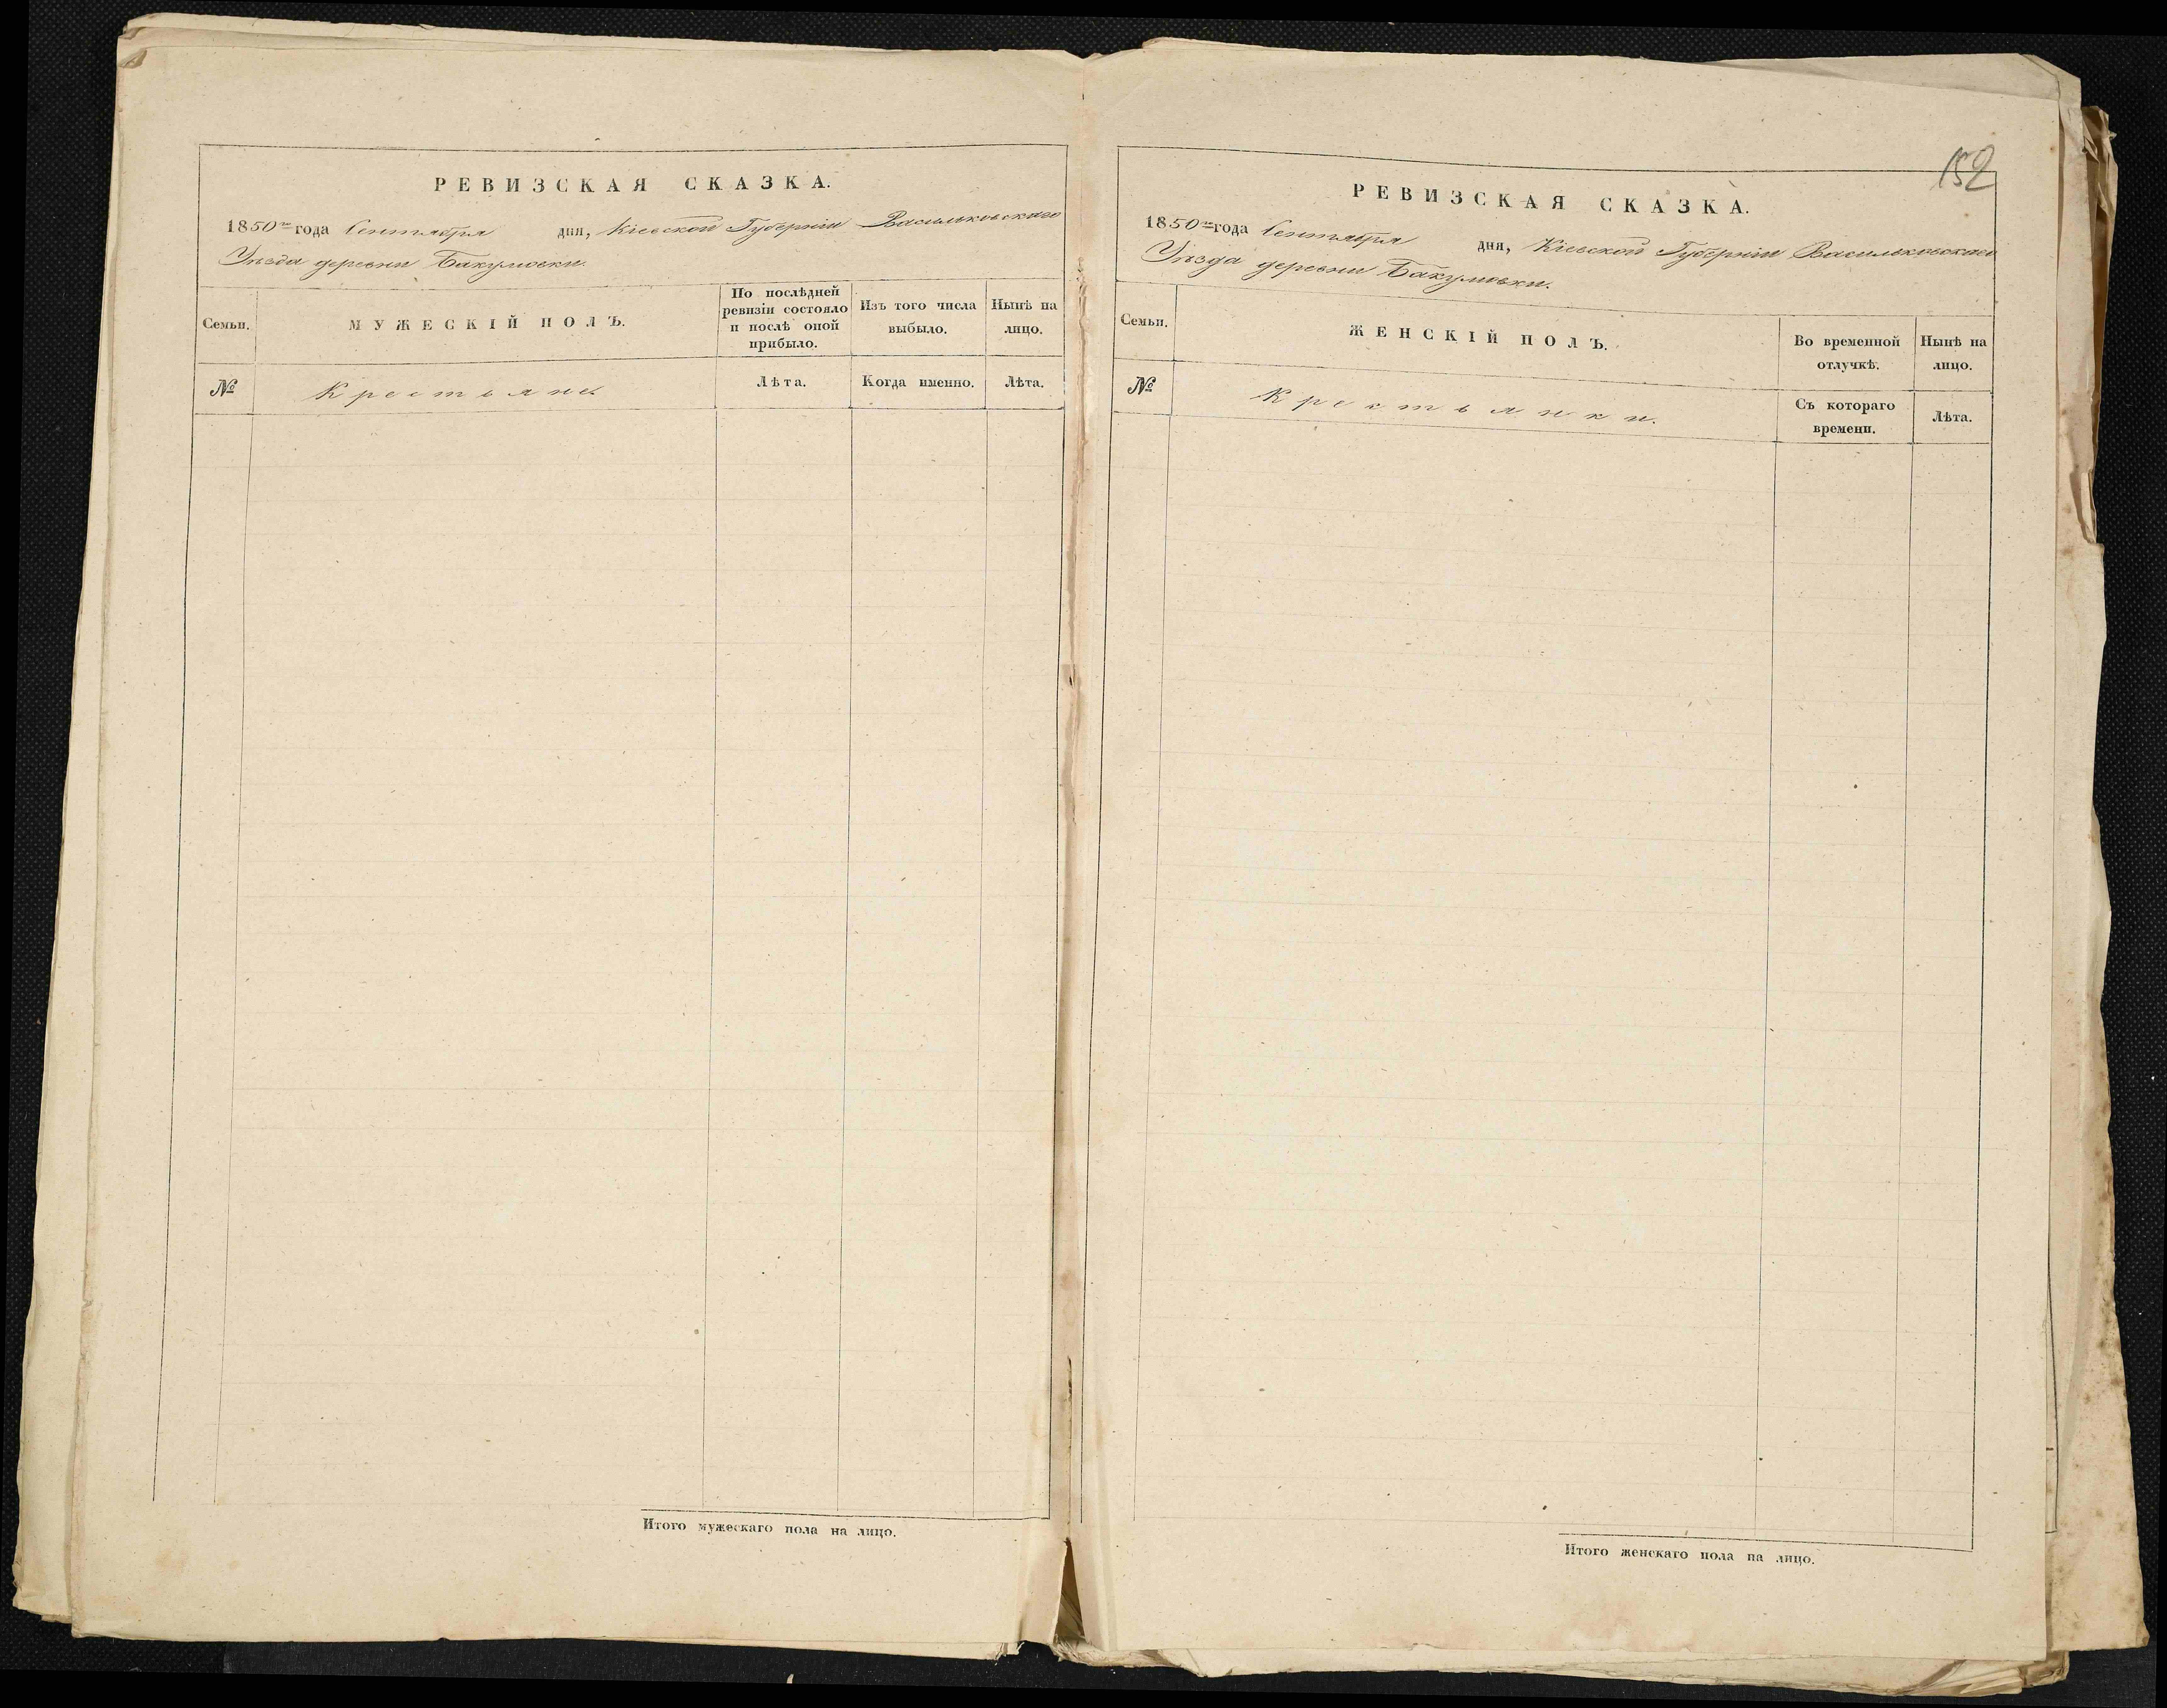 РЕВИЗСКАЯ СКАЗКА.
1850го года Сентября дня, Кіевской Губерніи Васильковскаго
Уѣзда деревни Бакумовки.
Семьи.
МУЖЕСКІЙ ПОЛЪ.
По послѣдней ревизіи состояло и послѣ оной прибыло.
Изъ того числа выбыло.
Нынѣ на лицо.
№
Крестьяне
Лѣта.
Когда именно.
Лѣта.
Итого мужескаго пола на лицо.
152
РЕВИЗСКАЯ СКАЗКА.
1850го года Сентября дня, Кіевской Губерніи Васильковскаго
Уѣзда деревни Бакумовки.
Семьи.
ЖЕНСКІЙ ПОЛЪ.
Во временной отлучкѣ.
Нынѣ на лицо.
№
Крестьянки.
Съ котораго времени.
Лѣта.
Итого женскаго пола на лицо.